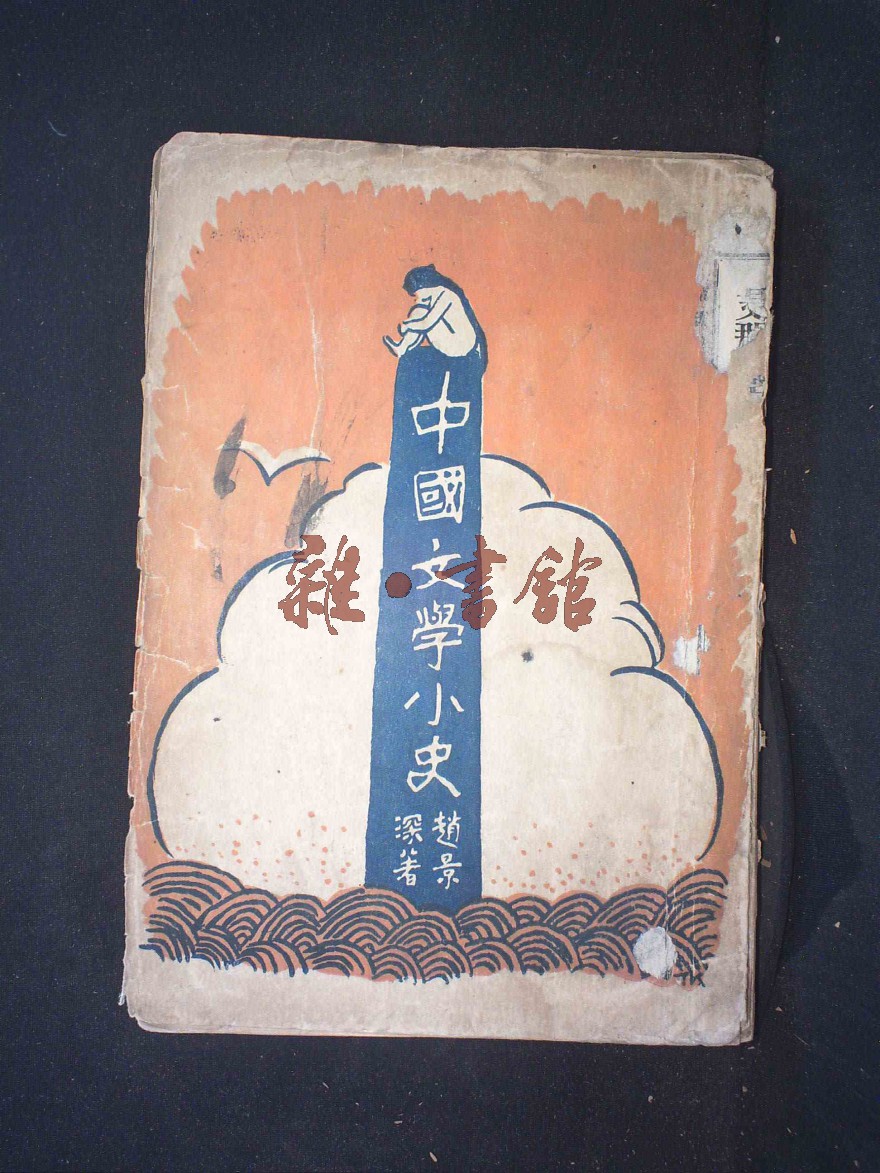 中國文學小史
趙景
深著
雜·書館